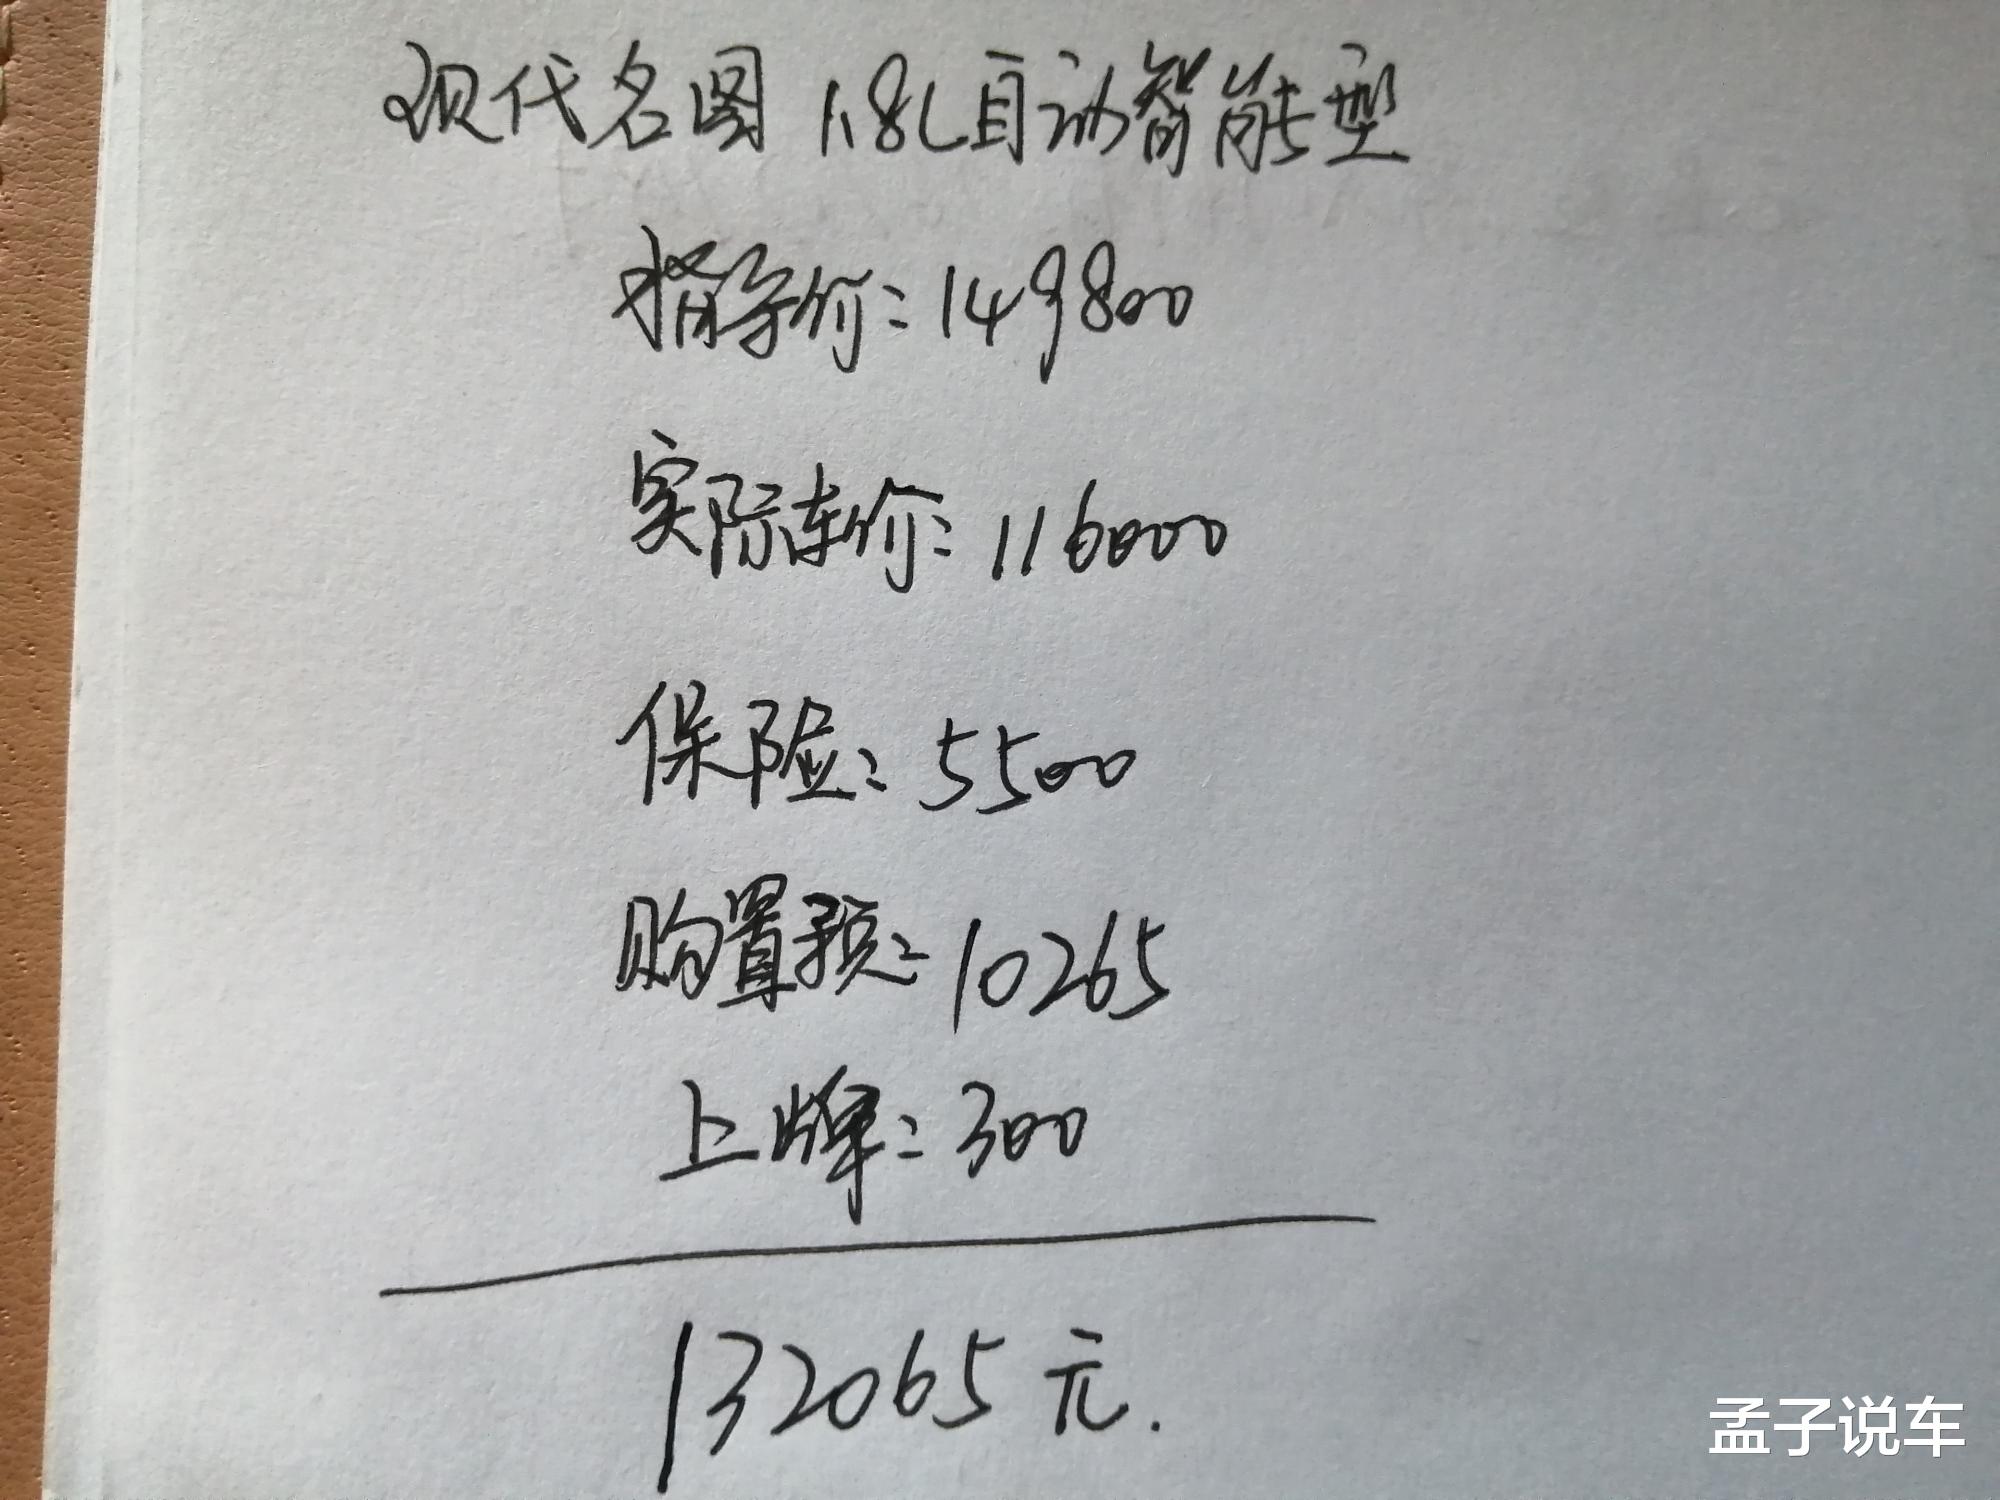 现代名图 1.8L自动智能型
指导价：149800
实际车价：116000
保险：5500
购置税：10265
上牌：300
132065元.
孟子说车